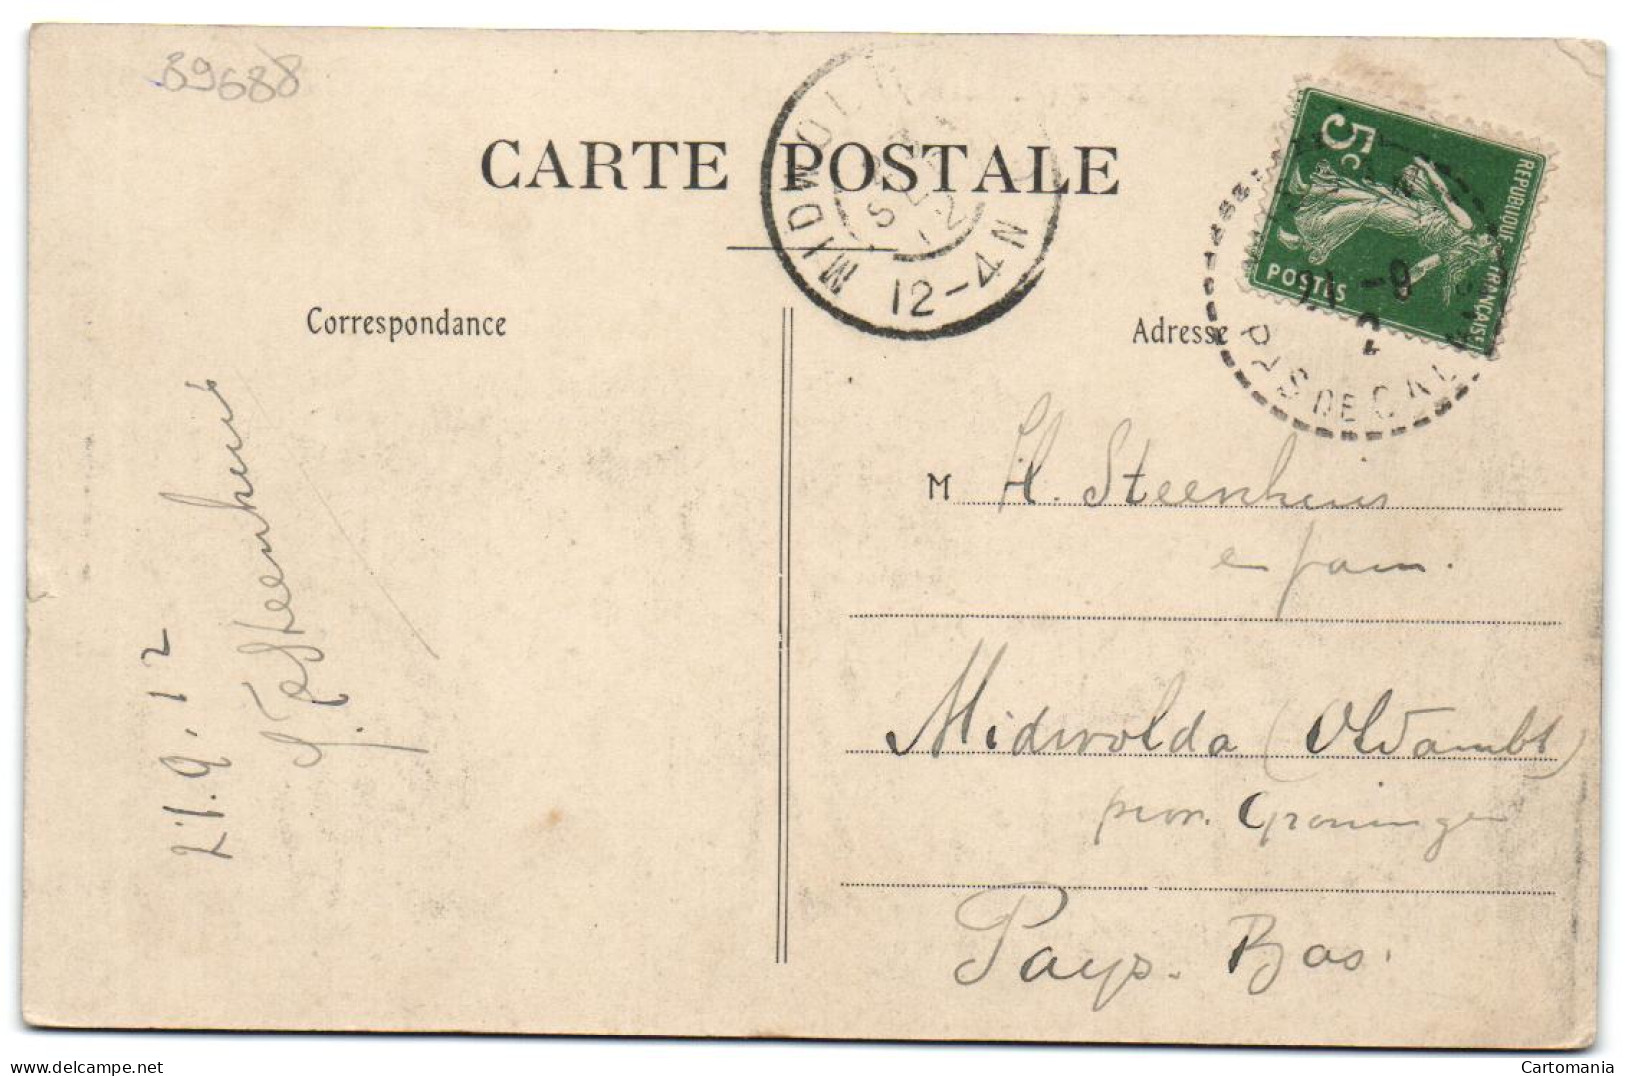 39688
CARTE POSTALE
MIDWOLDA
SEP
12
12-4N
5c
REPUBLIQUE FRANÇAISE
POSTES
21-9
12
PAS DE CALAIS
Correspondance
Adresse
21.9.12
Steenhuis
M H. Steenhuis
en fam.
Midwolda (Oldambt)
prov. Groningen
Pays-Bas.
delcampe.net
Cartomania